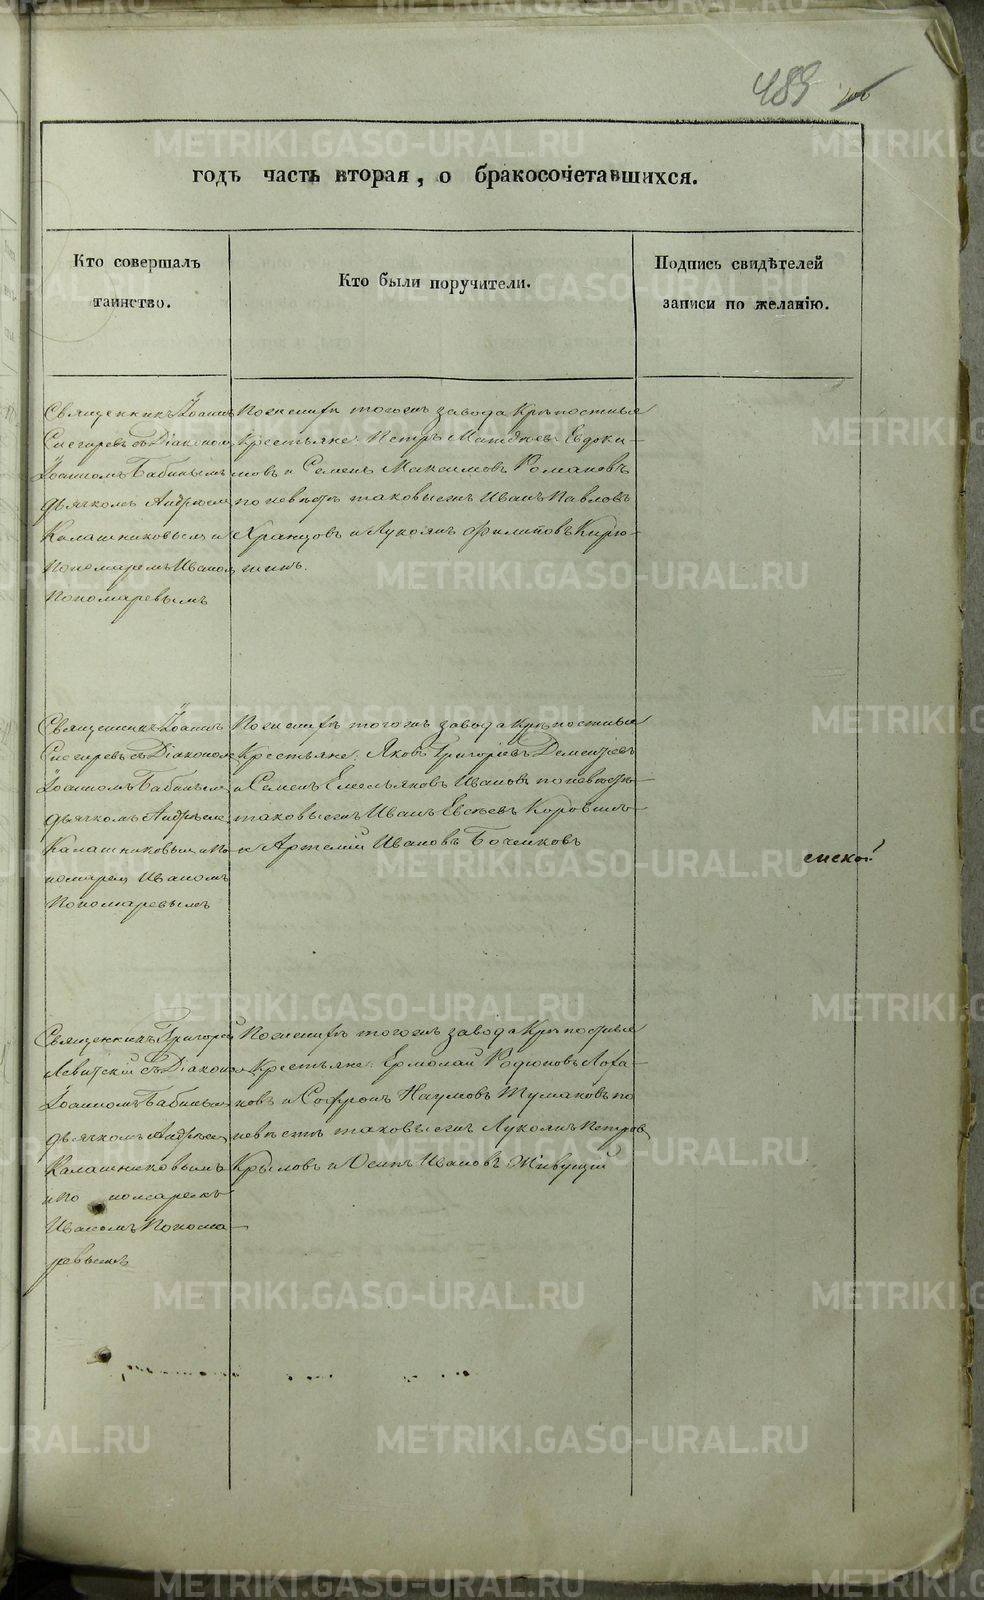 489
годъ часть вторая, о бракосочетавшихся.
Кто совершалъ
таинство.
Кто были поручители.
Подпись свидѣтелей
записи по желанію.
Священникъ Іоаннъ
Снегиревъ съ Діакономъ
Іоанномъ Бабинымъ
дьячкомъ Андреем
Калашниковым и
Пономаремъ Иваном
Пономаревымъ
По женихѣ тогожъ завода Крѣпостные
Крестьяне: Петръ Матвѣев Евдоки-
мовъ и Семенъ Максимов Романовъ
по невѣстѣ таковыежъ Иванъ Павловъ
Храмцовъ и Лукоянъ Филиповъ Кирю-
шинъ.
Священникъ Іоаннъ
Снегиревъ съ Діакономъ
Іоанномъ Бабинымъ
дьячкомъ Андреем
Калашниковым и По
номарем Иваномъ
Пономаревымъ
По женихѣ тогожъ завода Крѣпостные
Крестьяне: Яковъ Григорьевъ Дементьевъ
и Семенъ Емельяновъ Ивановъ по невѣстѣ
таковыежъ Иванъ Евсѣевъ Коровинъ
и Артемій Ивановъ Боченковъ
Священникъ Григорей
Левитскій съ Діаконом
Іоанномъ Бабиным
дьячкомъ Андреем
Калашниковымъ
и По номаремъ
Иваномъ Понома-
ревымъ
По женихѣ тогожъ завода Крѣпостные
Крестьяне: Ермолай Родионовъ Лоха-
новъ и Софронъ Наумовъ Тумаковъ по
невѣстѣ таковыежъ Лукоянъ Петров
Крыловъ и Осипъ Ивановъ Живущій
METRIKI.GASO-URAL.RU